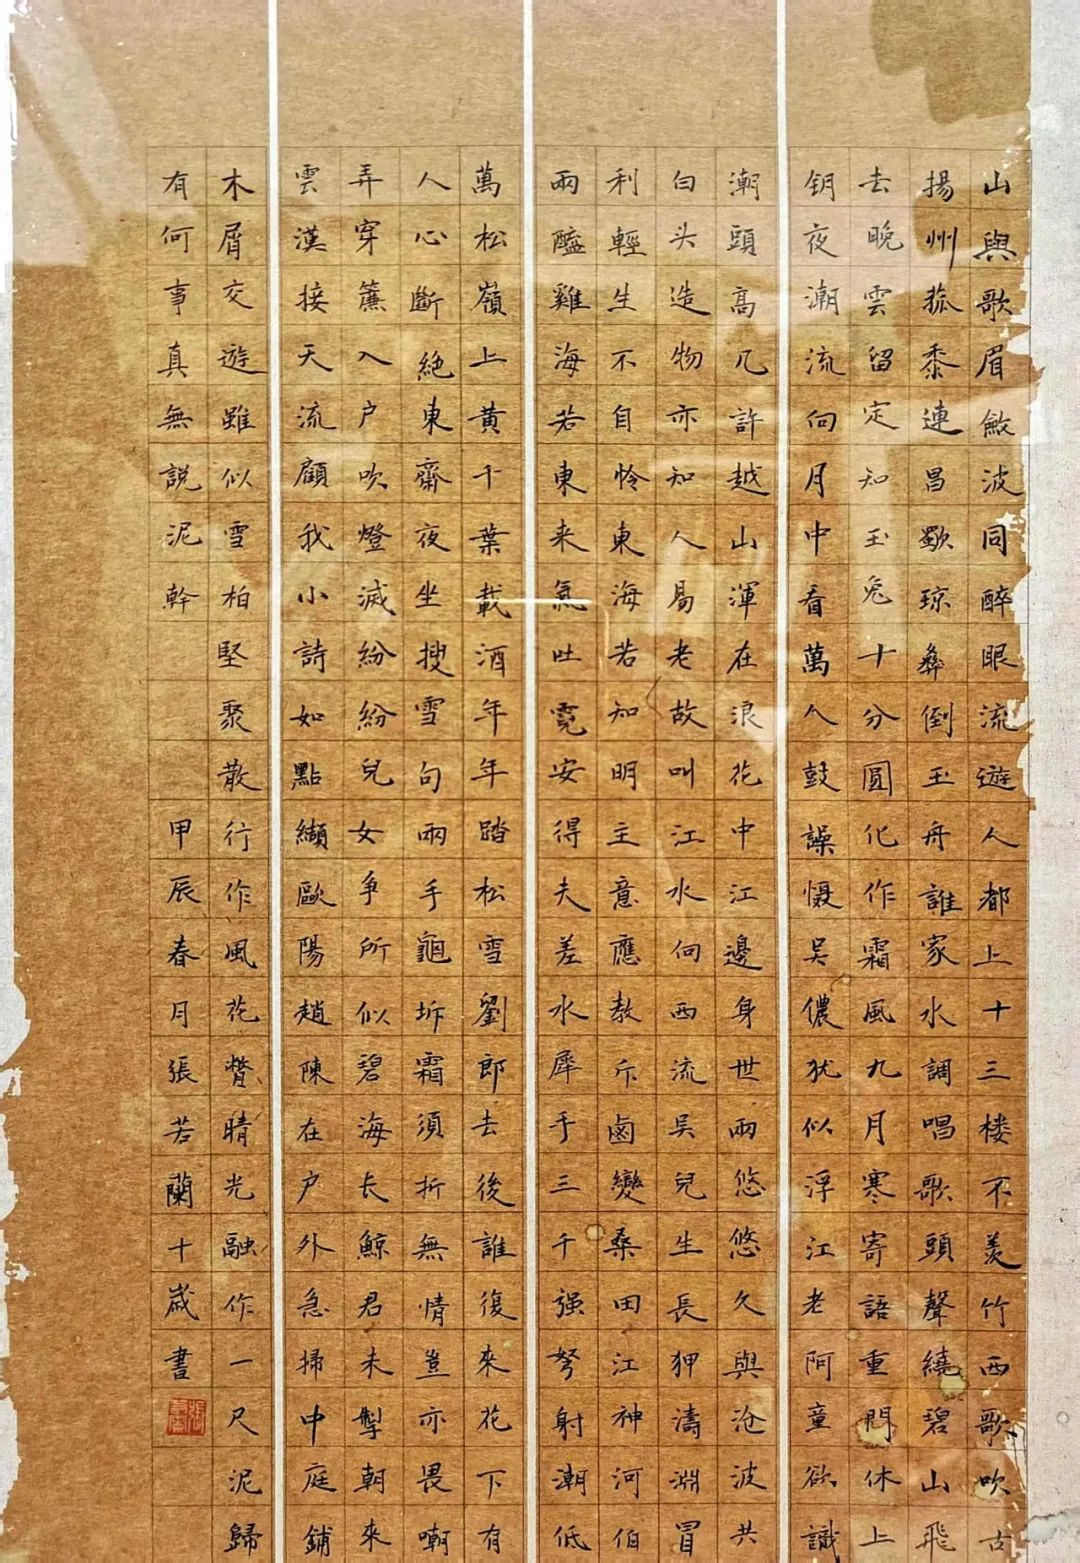 山與歌眉斂波同醉眼流遊人都上十三楼不羡竹西歌吹古
揚州菰黍連昌歜琼彝倒玉舟誰家水調唱歌頭聲繞碧山飛
去晚雲留定知玉兔十分圓化作霜風九月寒寄語重門休上
钥夜潮流向月中看萬人鼓譟慑吴儂犹似浮江老阿童欲識
潮頭高几許越山渾在浪花中江邊身世兩悠悠久與沧波共
白头造物亦知人易老故叫江水向西流吴兒生長狎濤淵冒
利輕生不自怜東海若知明主意應教斥鹵變桑田江神河伯
兩醯雞海若東来氣吐霓安得夫差水犀手三千强弩射潮低
萬松嶺上黄千葉載酒年年踏松雪劉郎去後誰復來花下有
人心斷絶東齋夜坐搜雪句兩手龜坼霜須折無情豈亦畏嘲
弄穿簾入户吹燈滅紛紛兒女争所似碧海长鲸君未掣朝來
雲漢接天流顧我小詩如點纈歐陽趙陳在户外急掃中庭鋪
木屑交遊雖似雪柏堅聚散行作風花瞥晴光融作一尺泥歸
有何事真無説泥幹 甲辰春月張若蘭十歲書